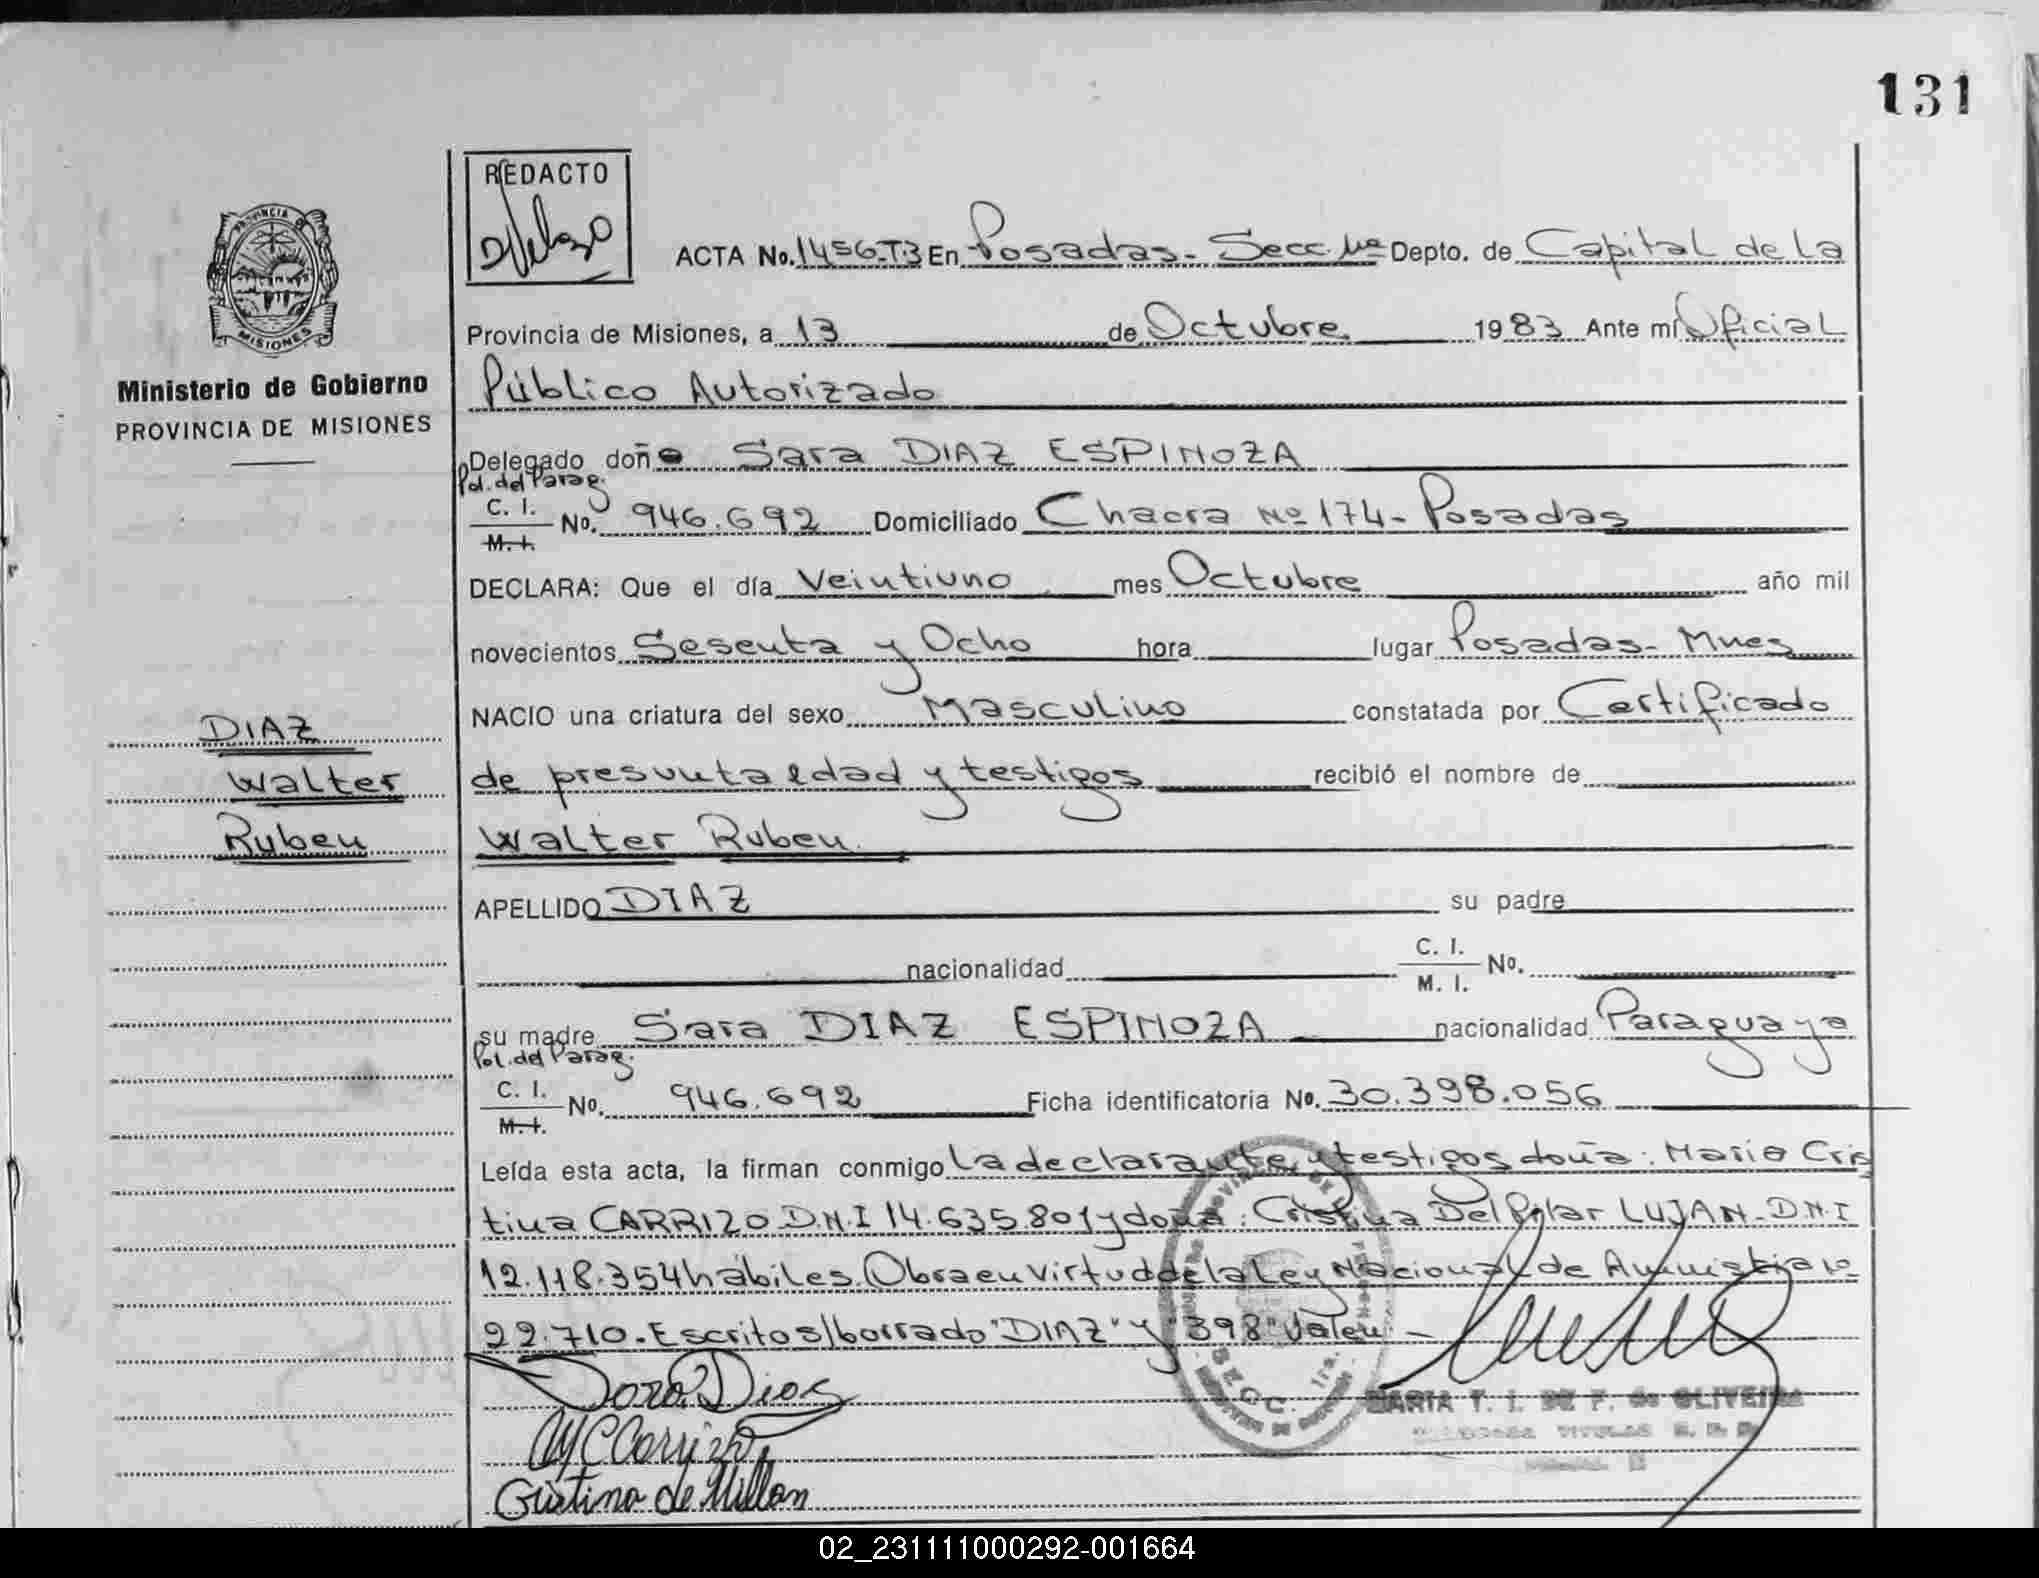 131
REDACTO
PROVINCIA DE
MISIONES
Ministerio de Gobierno
PROVINCIA DE MISIONES
DIAZ
Walter
Ruben
ACTA No. 1456-T3 En Posadas - Secc. 1ra Depto. de Capital de La
Provincia de Misiones, a 13 de Octubre 1983 Ante mí Oficial
Público Autorizado
Delegado doña Sara DIAZ ESPINOZA
Pol. del Parag.
C. I.
M. I. No. 946.692 Domiciliado Chacra Nº 174 - Posadas
DECLARA: Que el día Veintiuno mes Octubre año mil
novecientos Sesenta y Ocho hora lugar Posadas - Mnes
NACIO una criatura del sexo Masculino constatada por Certificado
de presunta edad y testigos recibió el nombre de
Walter Ruben
APELLIDO DIAZ su padre
nacionalidad C. I. M. I. No.
su madre Sara DIAZ ESPINOZA nacionalidad Paraguaya
Pol. del Parag.
C. I.
M. I. No. 946.692 Ficha identificatoria No. 30.398.056
Leída esta acta, la firman conmigo La declarante y testigos doña: Maria Cris
tina CARRIZO D.N.I 14.635.801 y doña: Cristina Del Pilar LUJAN - D.N.I
12.118.354 hábiles. Obra en Virtud de la Ley Nacional de Amnistia Nº
22.710. Escrito s/borrado "DIAZ" y "398" Valen. -
Sara Dias
MCCarrizo
Cristina de Millan
SECC. 1ra.
MARIA T. I. DE F. de OLIVEIRA
02_231111000292-001664